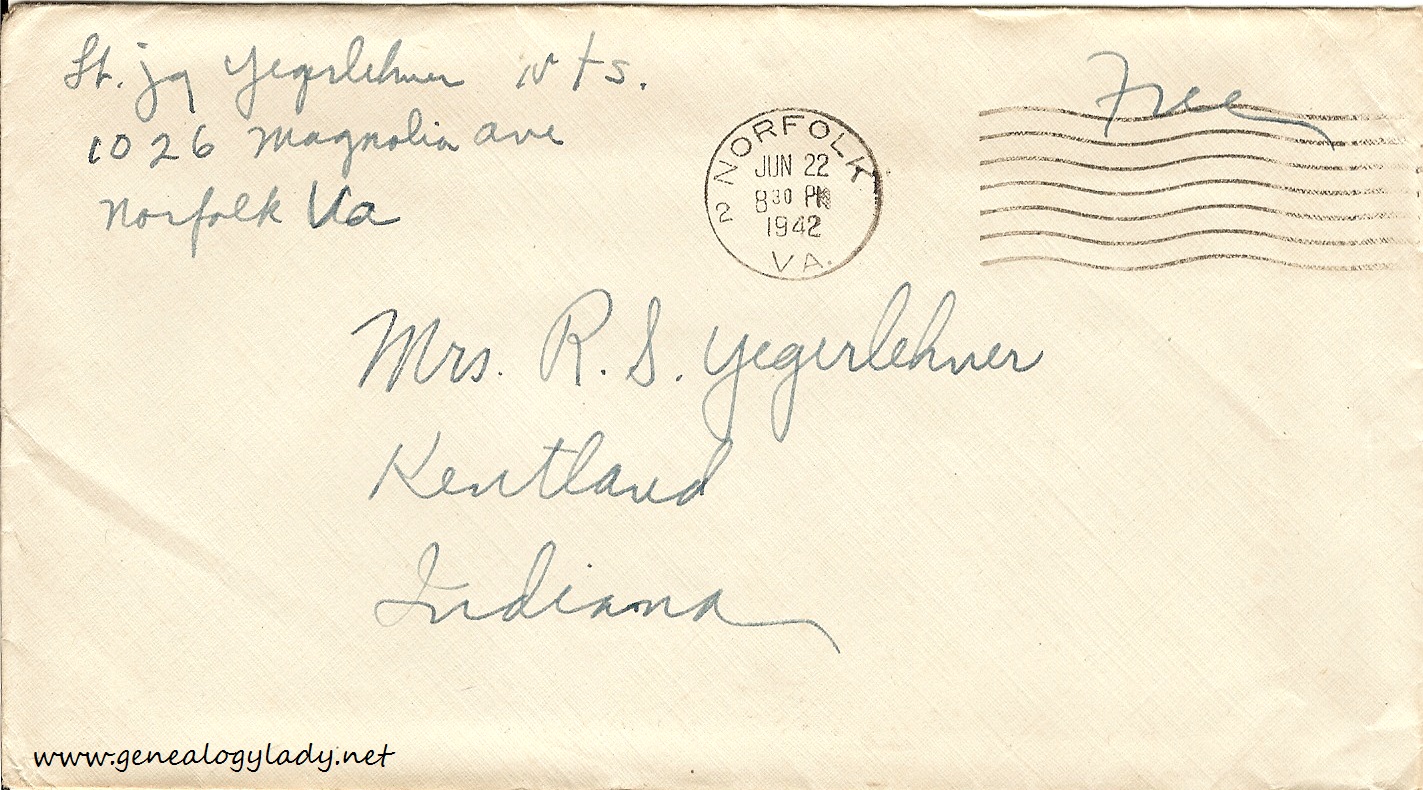 Lt. jg Yegerlehner NTS.
1026 Magnolia Ave
Norfolk Va
Free
NORFOLK
JUN 22
8 30 PM
1942
2 VA.
Mrs. R. S. Yegerlehner
Kentland
Indiana
www.genealogylady.net